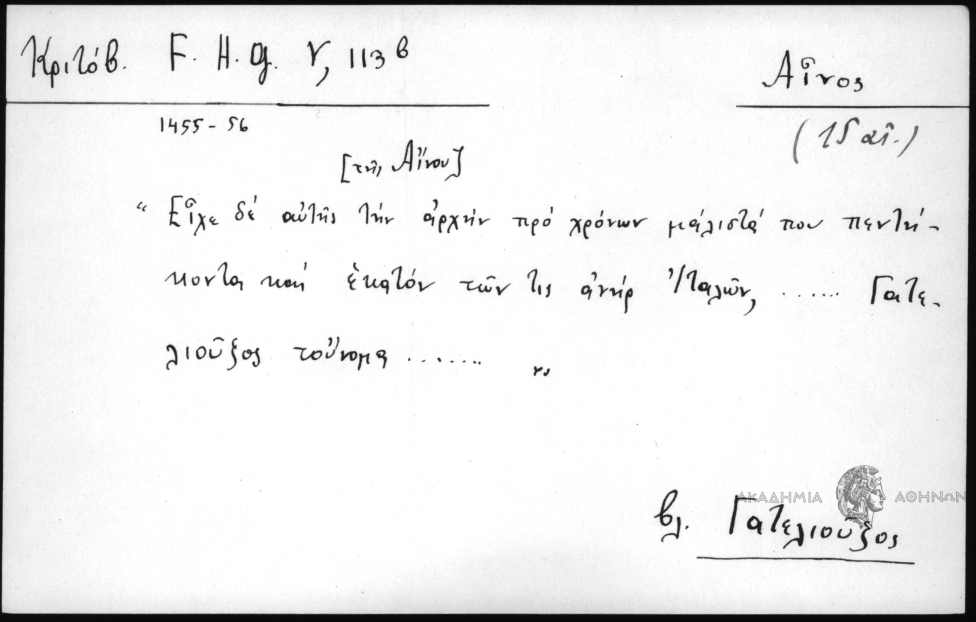 Κριτόβ. F. H. G. V, 113 β
Αἶνος
1455-56
(15 αἰ.)
[τῆς Αἴνου]
"Εἶχε δέ αὐτῆς τήν ἀρχήν πρό χρόνων μάλιστά που πεντή-
κοντα καί ἑκατόν τῶν τις ἀνήρ Ἰταλῶν, ...... Γατε-
λιοῦξος τοὔνομα ....... "
ΑΚΑΔΗΜΙΑ ΑΘΗΝΩΝ
βλ. Γατελιοῦξος